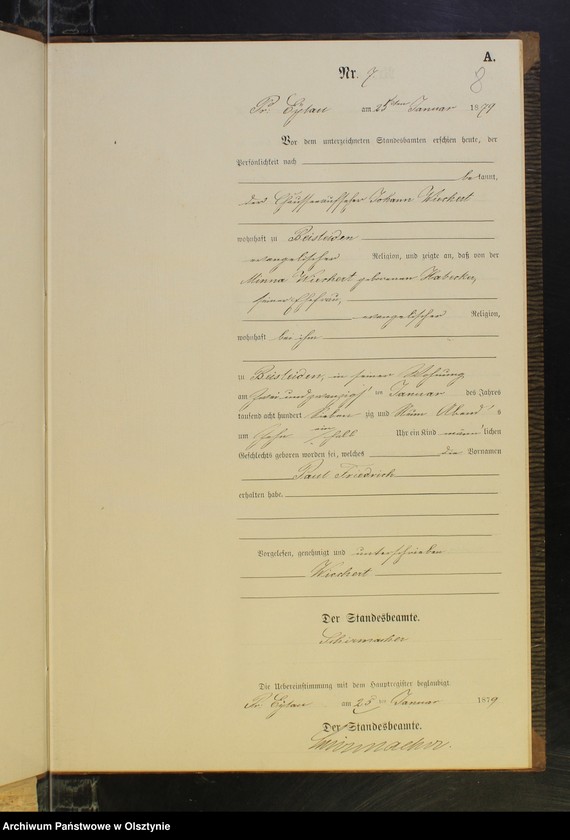 A.
Nr. 7
8
Pr. Eylau am 25ten Januar 1879
Vor dem unterzeichneten Standesbeamten erschien heute, der
Persönlichkeit nach
be kannt,
der Chausseeaufseher Johann Wiechert
wohnhaft zu Beisleiden
evangelischer Religion, und zeigte an, daß von der
Minna Wiechert geborenen
seiner Ehefrau,
evangelischer Religion,
wohnhaft bei ihm
zu Beisleiden, in seiner Wohnung
am zwei und zwanzigsten Januar des Jahres
tausend acht hundert sieben zig und Neun Abend s
um Zehn ein halb Uhr ein Kind männ lichen
Geschlechts geboren worden sei, welches die Vornamen
Paul Friedrich
erhalten habe.
Vorgelesen, genehmigt und unterschrieben
Wiechert
Der Standesbeamte.
Schirmacher
Die Uebereinstimmung mit dem Hauptregister beglaubigt.
Pr. Eylau am 25 ten Januar 1879
Der Standesbeamte.
Schirmacher.
Archiwum Państwowe w Olsztynie